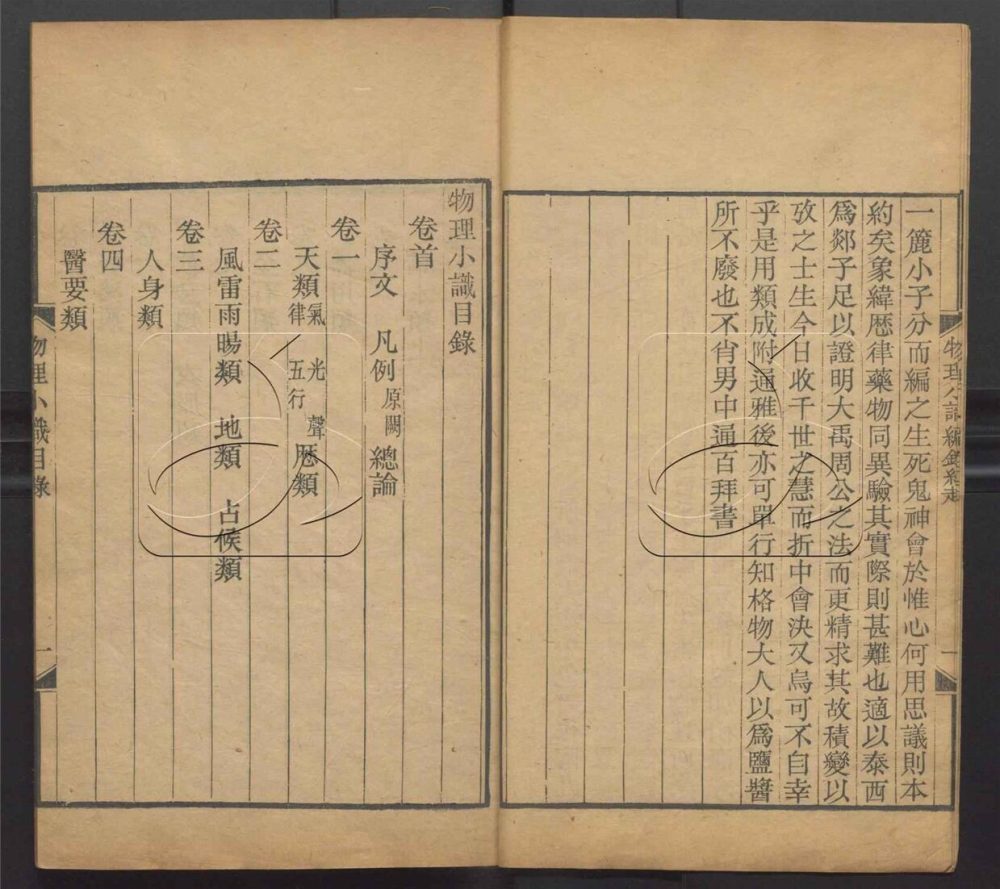 一簏小子分而編之生死鬼神會於惟心何用思議則本
約矣象緯厯律藥物同異驗其實際則甚難也適以泰西
爲郯子足以證明大禹周公之法而更精求其故積變以
攷之士生今日收千世之慧而折中會決又烏可不自幸
乎是用類成附通雅後亦可單行知格物大人以爲鹽醬
所不廢也不肖男中通百拜書
一
物理小識目錄
卷首
序文 凡例 原闕 總論
卷一
天類 氣 律 光 五行 聲 厯類
卷二
風雷雨暘類 地類 占候類
卷三
人身類
卷四
醫要類
物理小識目錄
一